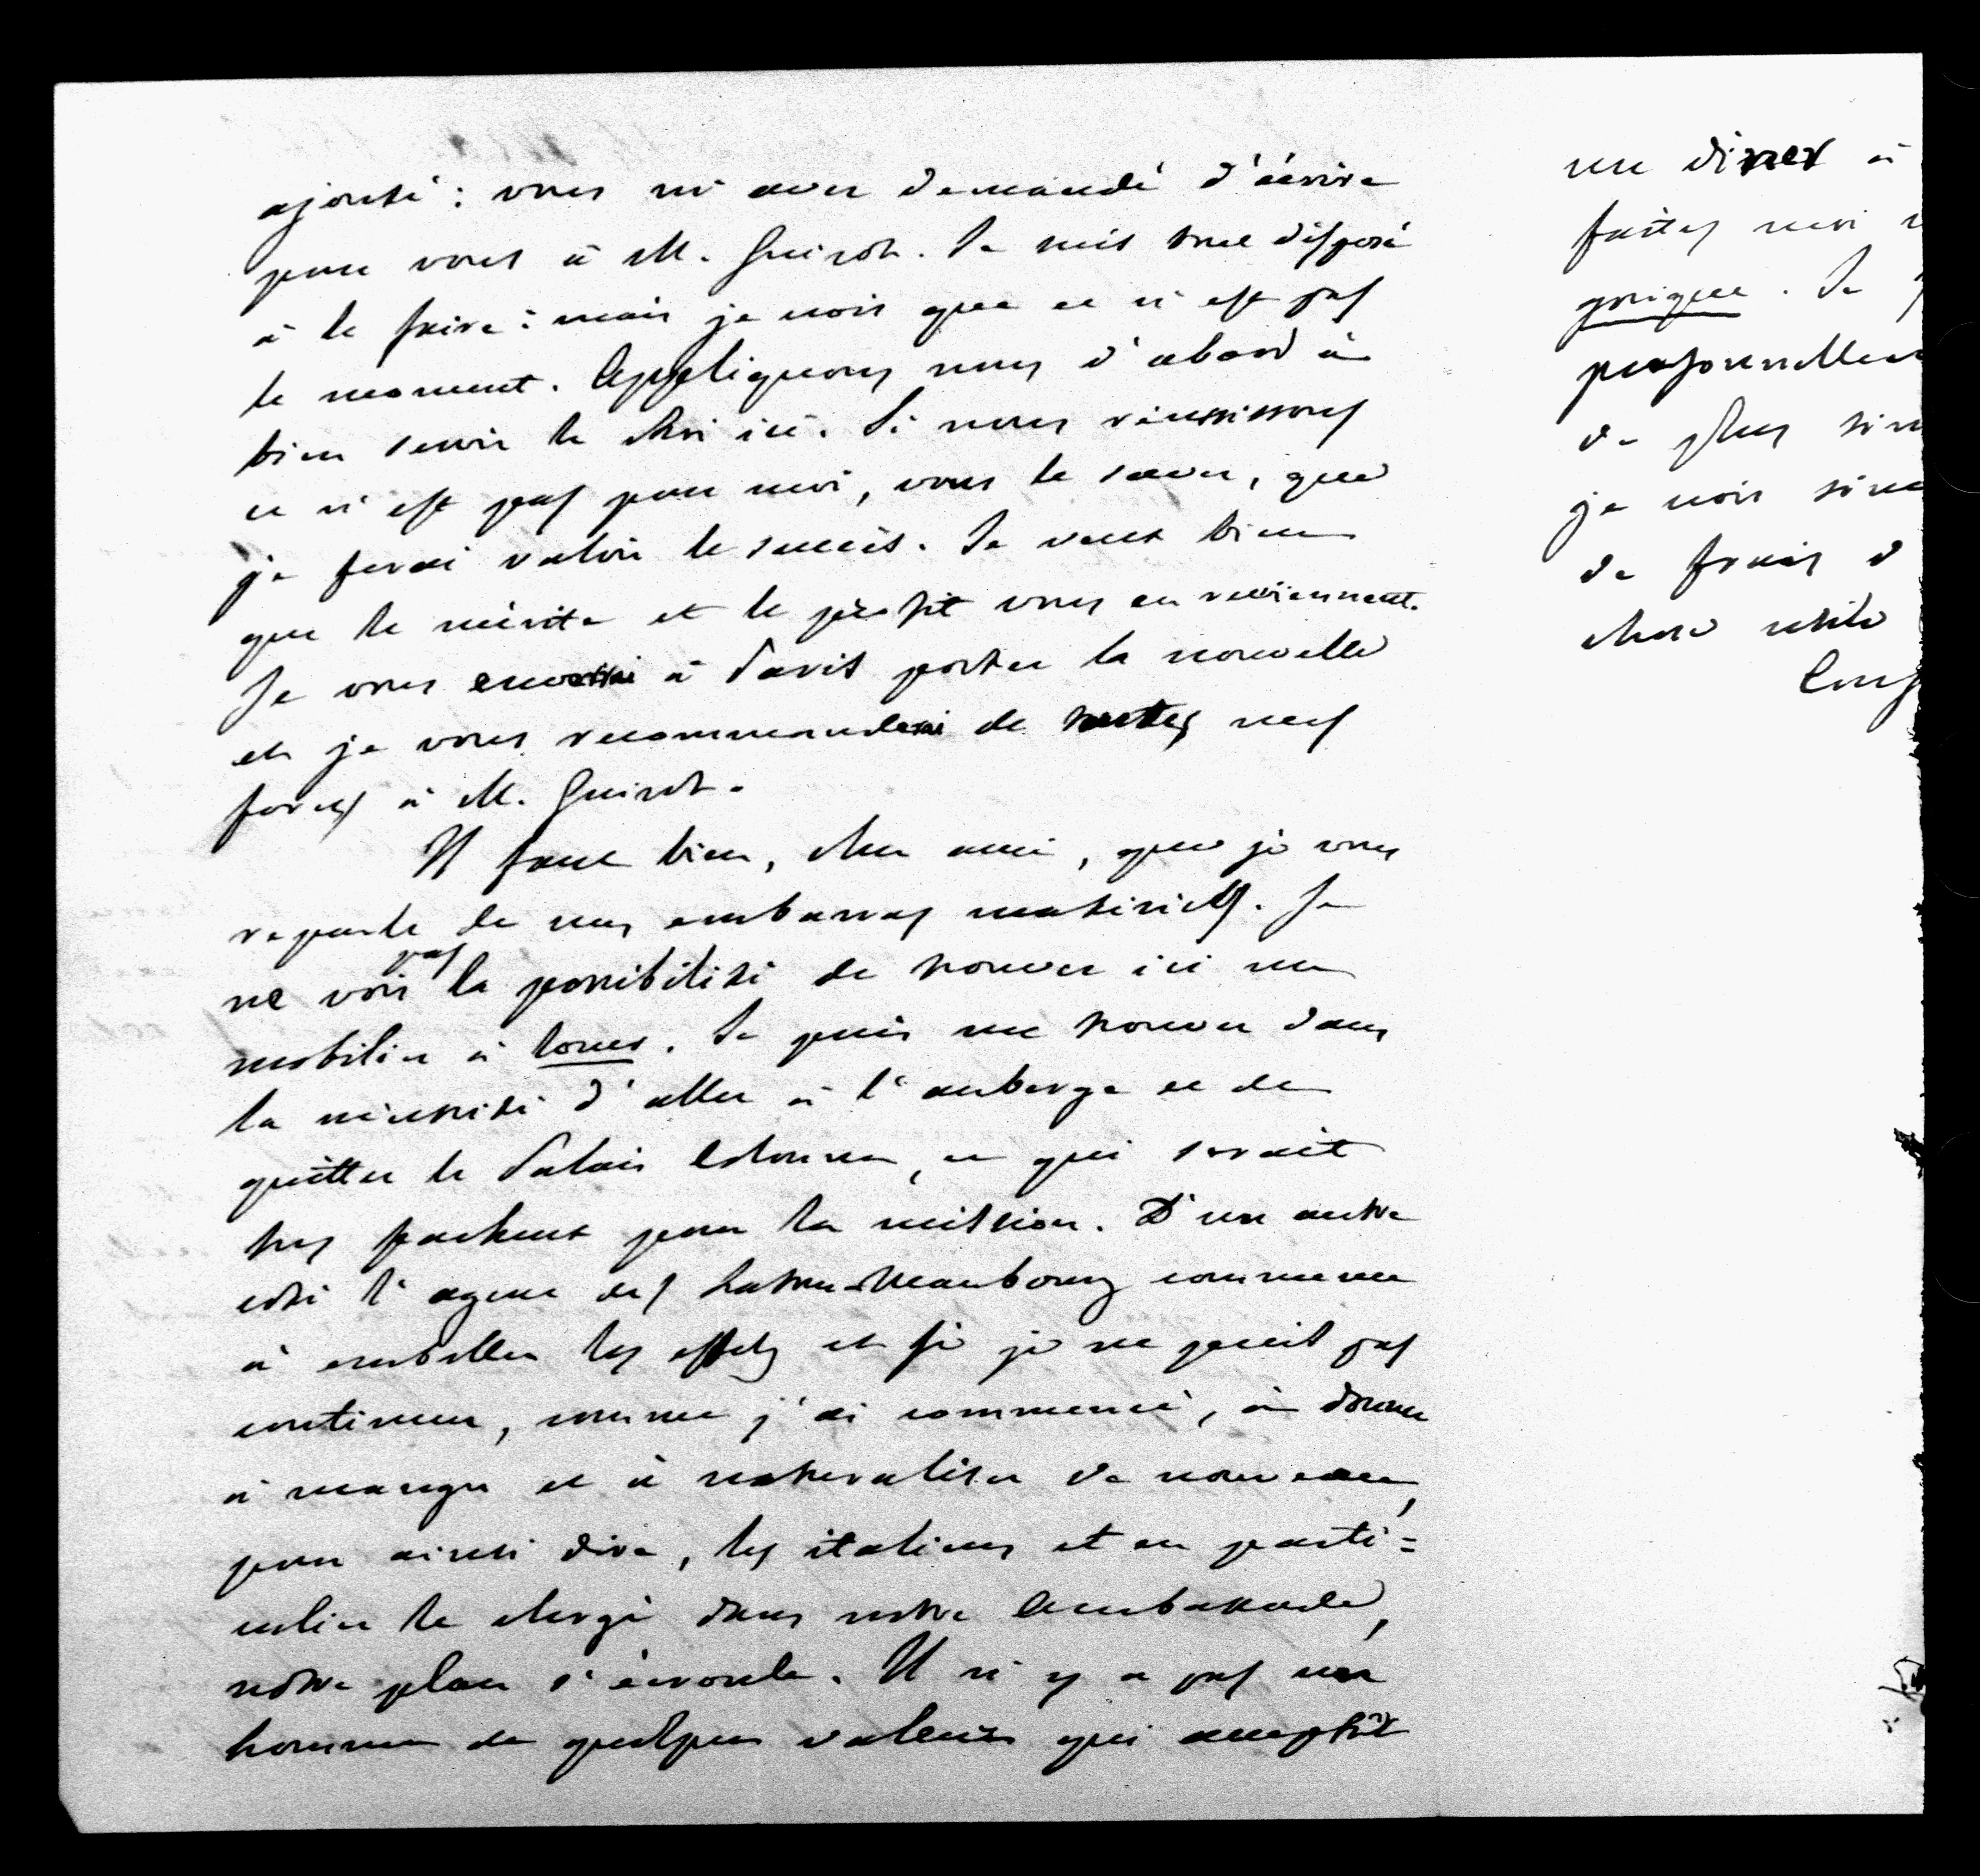 ajouté : vous m'avez demandé d'écrire
pour vous à M. Guizot. Je suis tout disposé
à le faire : mais je crois que ce n'est pas
le moment. Appliquons nous d'abord à
bien servir le Roi ici. Si nous réussissons
ce n'est pas pour moi, vous le savez, que
je ferai valoir le succès. Je veux bien
que le mérite et le profit vous en reviennent.
Je vous enverrai à Paris porter la nouvelle
et je vous recommanderai de toutes mes
forces à M. Guizot.
Il faut bien, cher ami, que je vous
reparle de mes embarras matériels. Je
ne vois pas la possibilité de trouver ici un
mobilier à louer. Je puis me trouver dans
la nécessité d'aller à l'auberge et de
quitter le Palais Colonna, ce qui serait
très facheux pour la mission. D'un autre
coté l'agent des Latour-Maubourg commence
à emballer les effets et si je ne puis pas
continuer, comme j'ai commencé, à donner
à manger et à naturaliser de nouveau,
pour ainsi dire, les italiens et en parti=
culier le clergé dans notre Ambassade,
notre plan s'écroule. Il n'y a pas un
homme de quelque valeur qui acceptât
un diner à
faites moi
. Je
personnellem
de plus
je crois
de frais d
chose utile